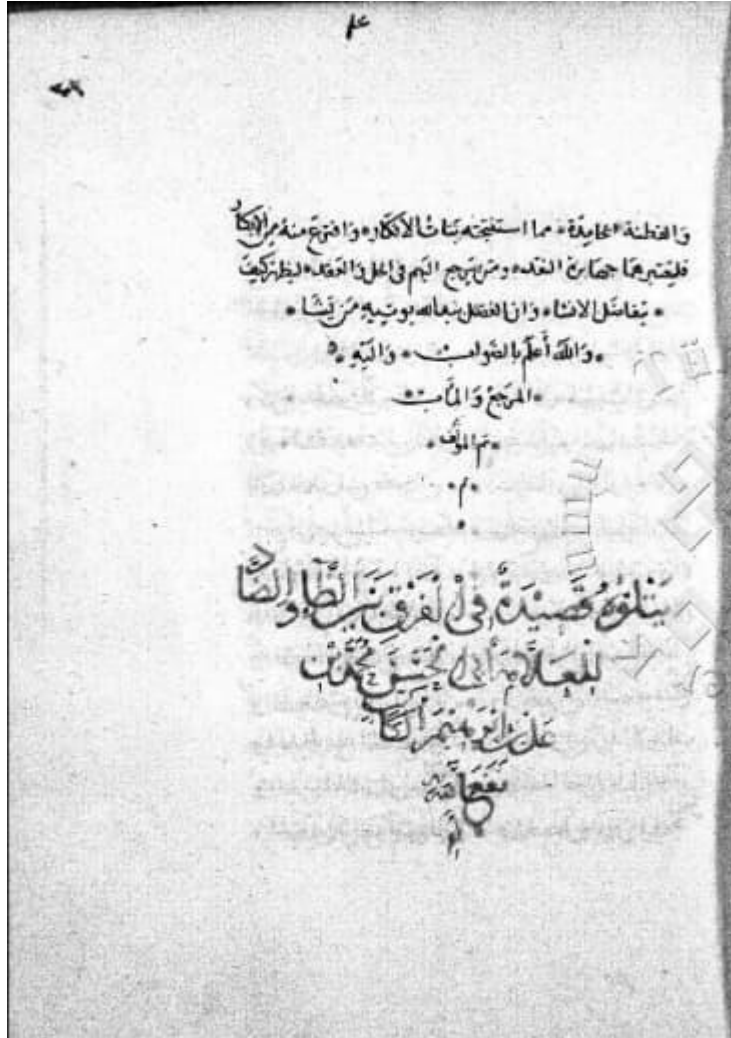 والفطنة الجامدة مما استنتجته بنات الأفكار وافترع منه من الابكار
فليعتبرهما جهابذة النقد ومن يرجع اليهم في الحل والعقد ليظهر كيف
يتفاضل الانشا وان الفضل بيد الله يوتيه من يشا
والله أعلم بالصواب واليه
المرجع والمآب
تم المؤلف
م
يتلوه قصيدة في الفرق بين الظاء والضاد
للعلامة أبي الحسن محمد بن
الكاتب
نفع الله
به